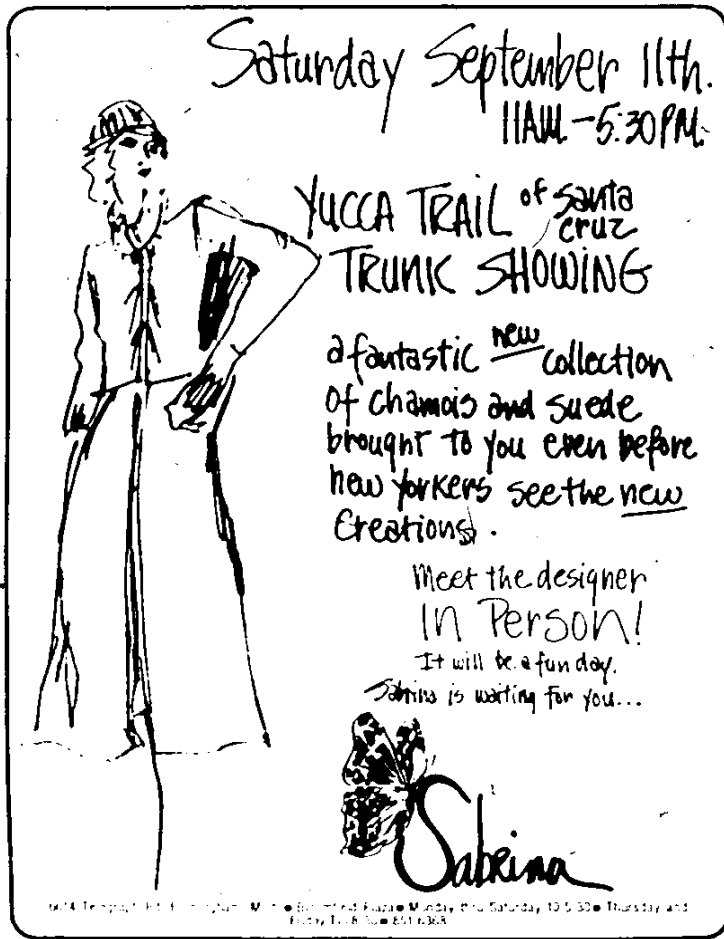 Saturday September 11th.
11AM-5:30PM.
YUCCA TRAIL of santa cruz
TRUNK SHOWING
a fantastic new collection
of chamois and suede
brought to you even before
new yorkers see the new
Creations.
Meet the designer
In Person!
It will be a fun day.
Sabrina is waiting for you...
Sabrina
Plaza • Monday thru Saturday 10-5:30 • Thursday and
Friday 851-6368